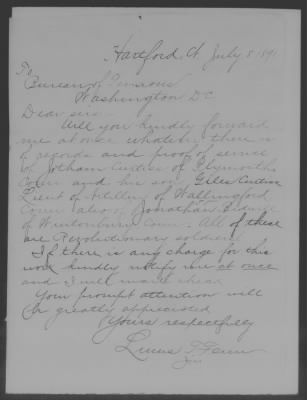 Hartford, Ct. July 8 1891
To
Bureau of Pensions
Washington DC
Dear sir -
Will you kindly forward
me at once whatever there is
of records and proof of service
of Jotham Curtiss of Plymouth
Conn and his son Giles Curtiss
Lieut of Artillery of Wallingford
Conn also of Jonathan
of Wintonbury Conn. All of these
are Revolutionary soldiers.
If there is any charge for this
work kindly notify me at once
and I will mail check
Your prompt attention will
be greatly appreciated
Yours respectfully